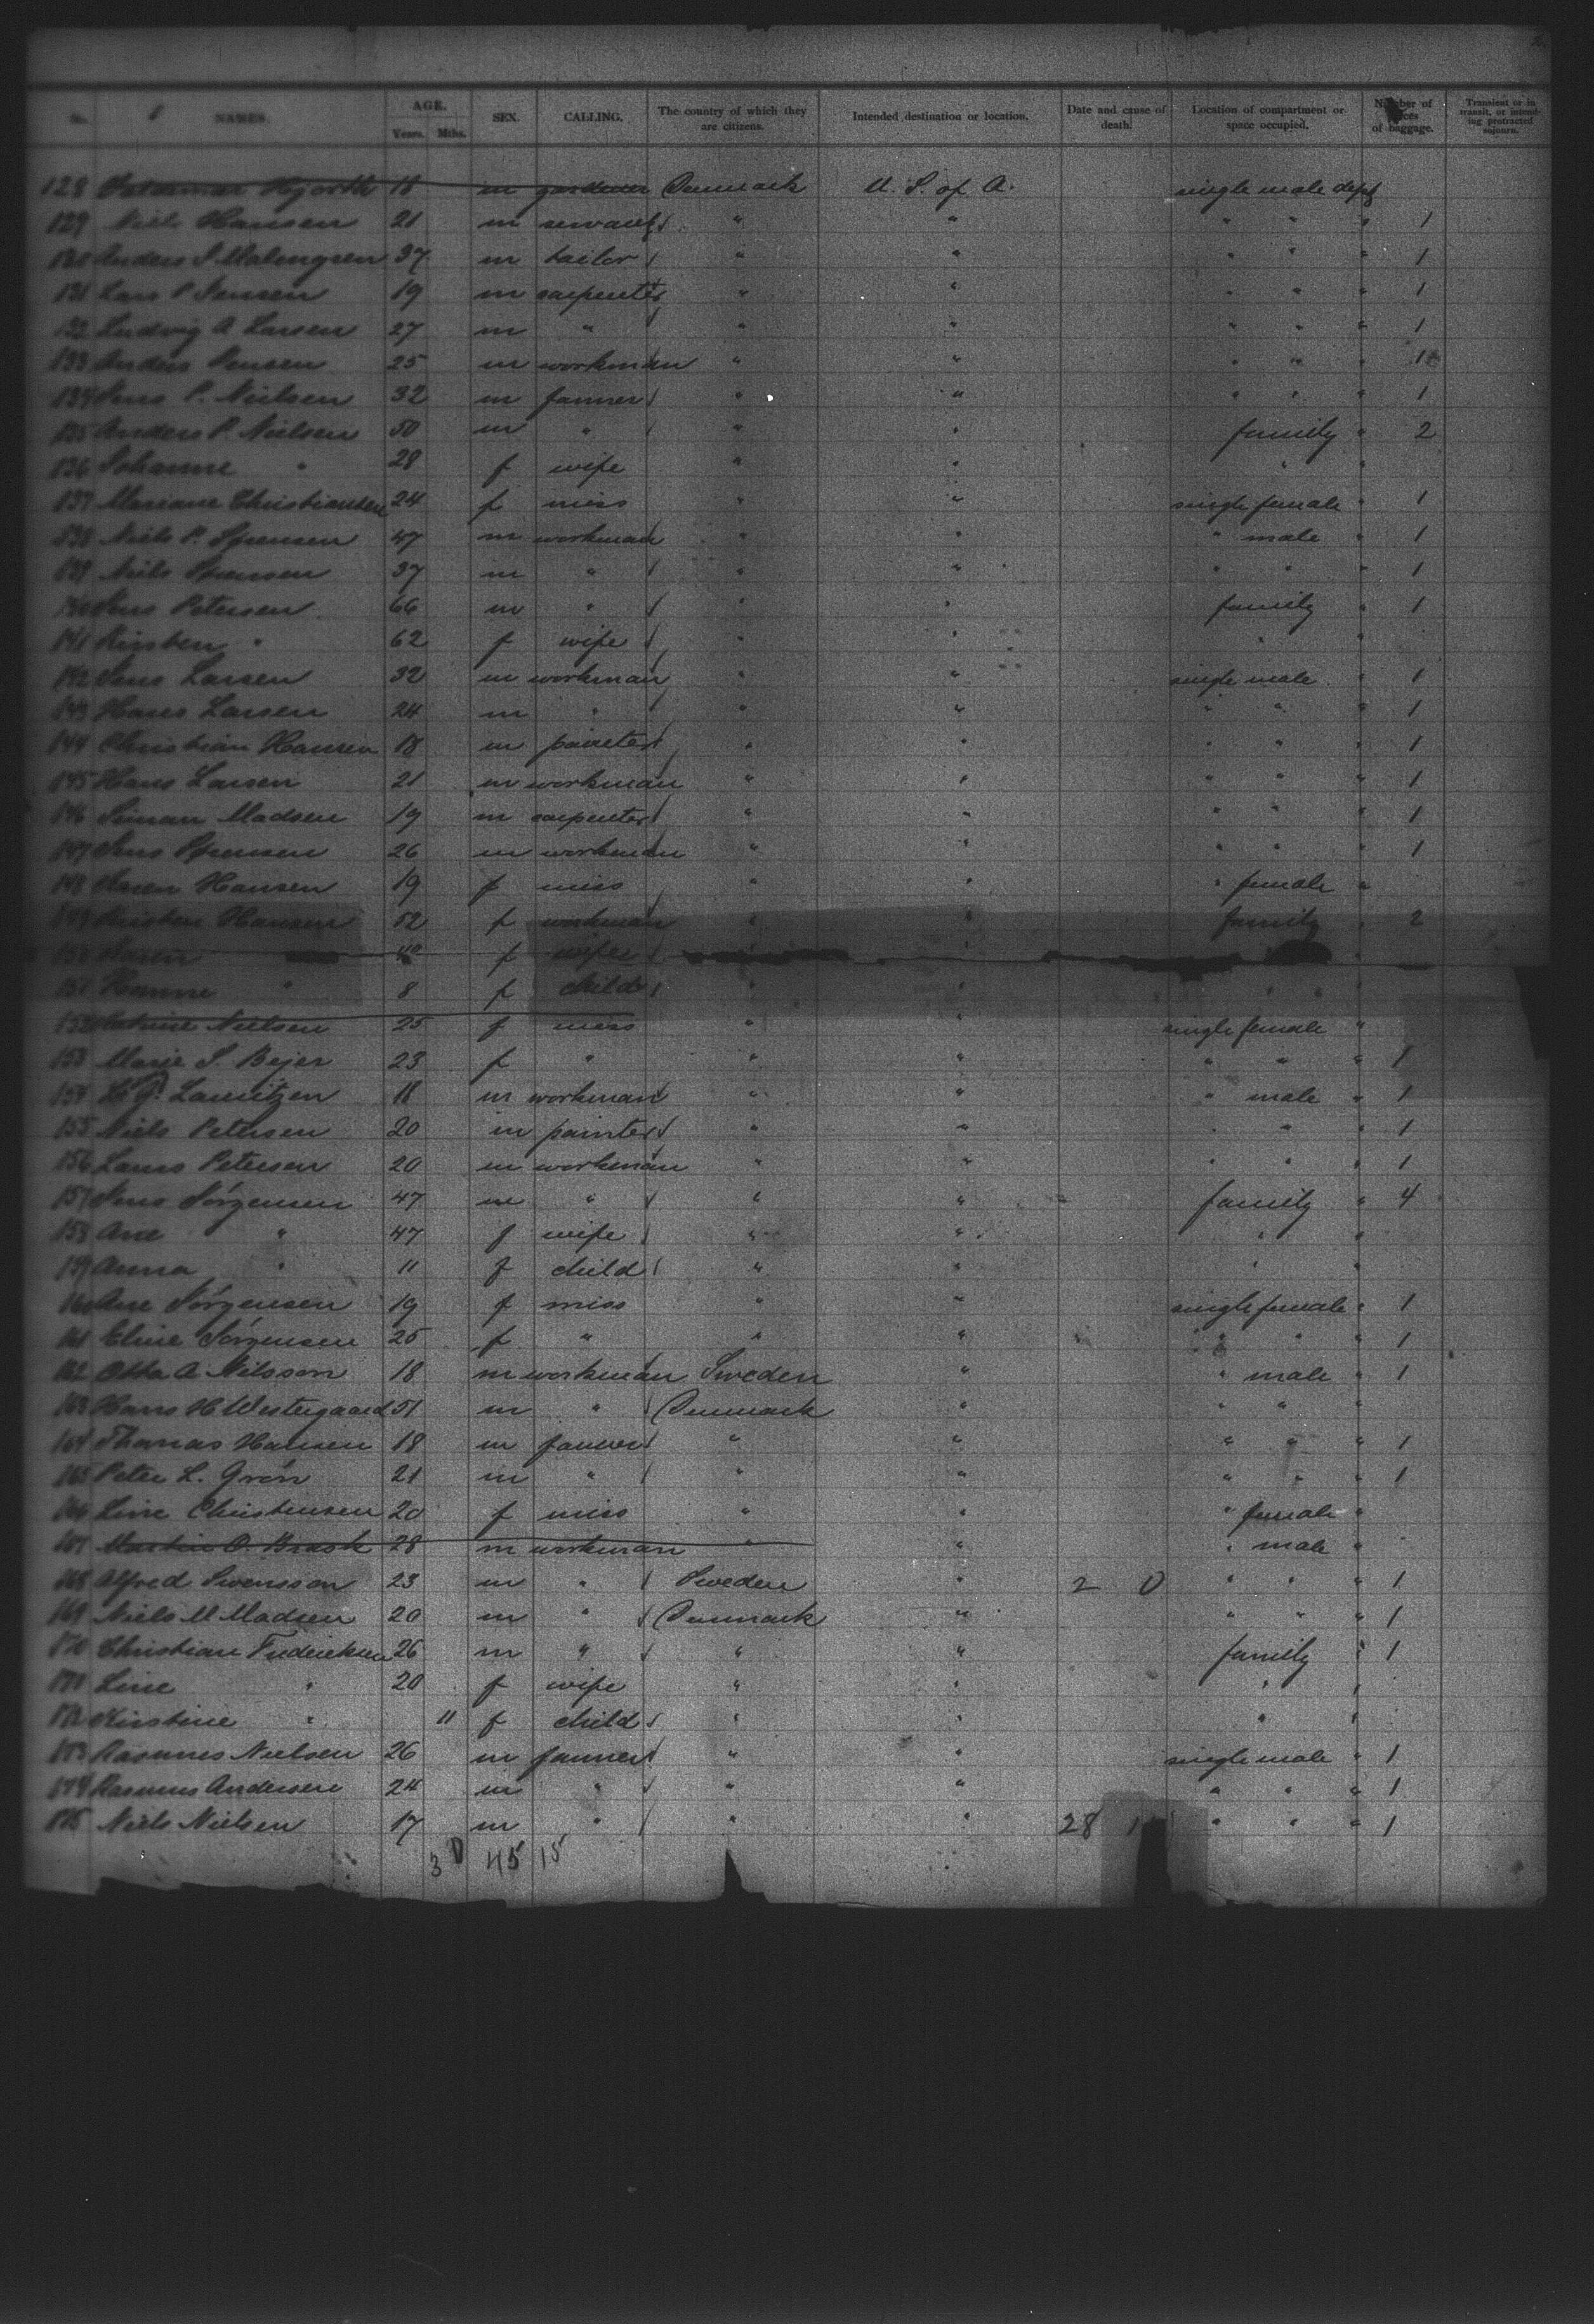 No. NAMES. AGE. Years. Mths. SEX. CALLING. The country of which they are citizens. Intended destination or location. Date and cause of death. Location of compartment or space occupied. Number of pieces of baggage. Transient or in transit, or intending protracted sojourn.
128 Valdemar Hjorth 18 m gardener Denmark U. S. of A. single male dept
129 Niels Hansen 21 m servant " " " " " 1
130 Anders S Malmgren 37 m tailor " " " " " 1
131 Lars P Jensen 19 m carpenter " " " " " 1
132 Ludwig A Larsen 27 m " " " " " " 1
133 Anders Jensen 25 m workman " " " " " 1
134 Jens P. Nielsen 32 m farmer " " " " " 1
135 Anders P. Nielsen 50 m " " " family " 2
136 Johanne " 28 f wife " " " "
137 Mariane Christiansen 24 f miss " " single female " 1
138 Niels P. Sørensen 47 m workman " " " male " 1
139 Niels Sørensen 37 m " " " " " " 1
140 Jens Petersen 66 m " " " family " 1
141 Kirsten " 62 f wife " " " "
142 Jens Larsen 32 m workman " " single male " 1
143 Hans Larsen 24 m " " " " " " 1
144 Christian Hansen 18 m painter " " " " " 1
145 Hans Larsen 21 m workman " " " " " 1
146 Simon Madsen 19 m carpenter " " " " " 1
147 Jens Sørensen 26 m workman " " " " " 1
148 Karen Hansen 19 f miss " " " female "
149 Hansen 52 f workman " " family " 2
150 Karen 40 f wife "
151 Hanne " 8 f child " " " "
152 Nielsen 25 f miss " " single female "
153 Marie S. Bejer 23 f " " " " " " 1
154 Lauritzen 18 m workman " " " male " 1
155 Niels Petersen 20 m painter " " " " " 1
156 Laurs Petersen 20 m workman " " " " " 1
157 Jens Jörgensen 47 m " " " family " 4
158 Ane " 47 f wife " " " "
159 Anna " 11 f child " " " "
160 Ane Jörgensen 19 f miss " " single female " 1
161 Eline Jörgensen 25 f " " " " " " 1
162 Otto A Nilsson 18 m workman Sweden " " male " 1
163 Hans H Westergaard 51 m " Denmark " " " "
164 Thomas Hansen 18 m farmer " " " " " 1
165 Peter L. Grön 21 m " " " " " " 1
166 Line Christensen 20 f miss " " " female "
167 Martin O. Brask 28 m workman " " " male "
168 Alfred Swensson 23 m " Sweden " 2 0 " " " 1
169 Niels M Madsen 20 m " Denmark " " " " 1
170 Christian Frederiksen 26 m " " " family " 1
171 Line " 20 f wife " " " "
172 Kirstine " 11 f child " " " "
173 Rasmus Nielsen 26 m farmer " " single male " 1
174 Rasmus Andersen 24 m " " " " " " 1
175 Niels Nielsen 17 m " " " 28 1 " " " 1
3 0 45 15